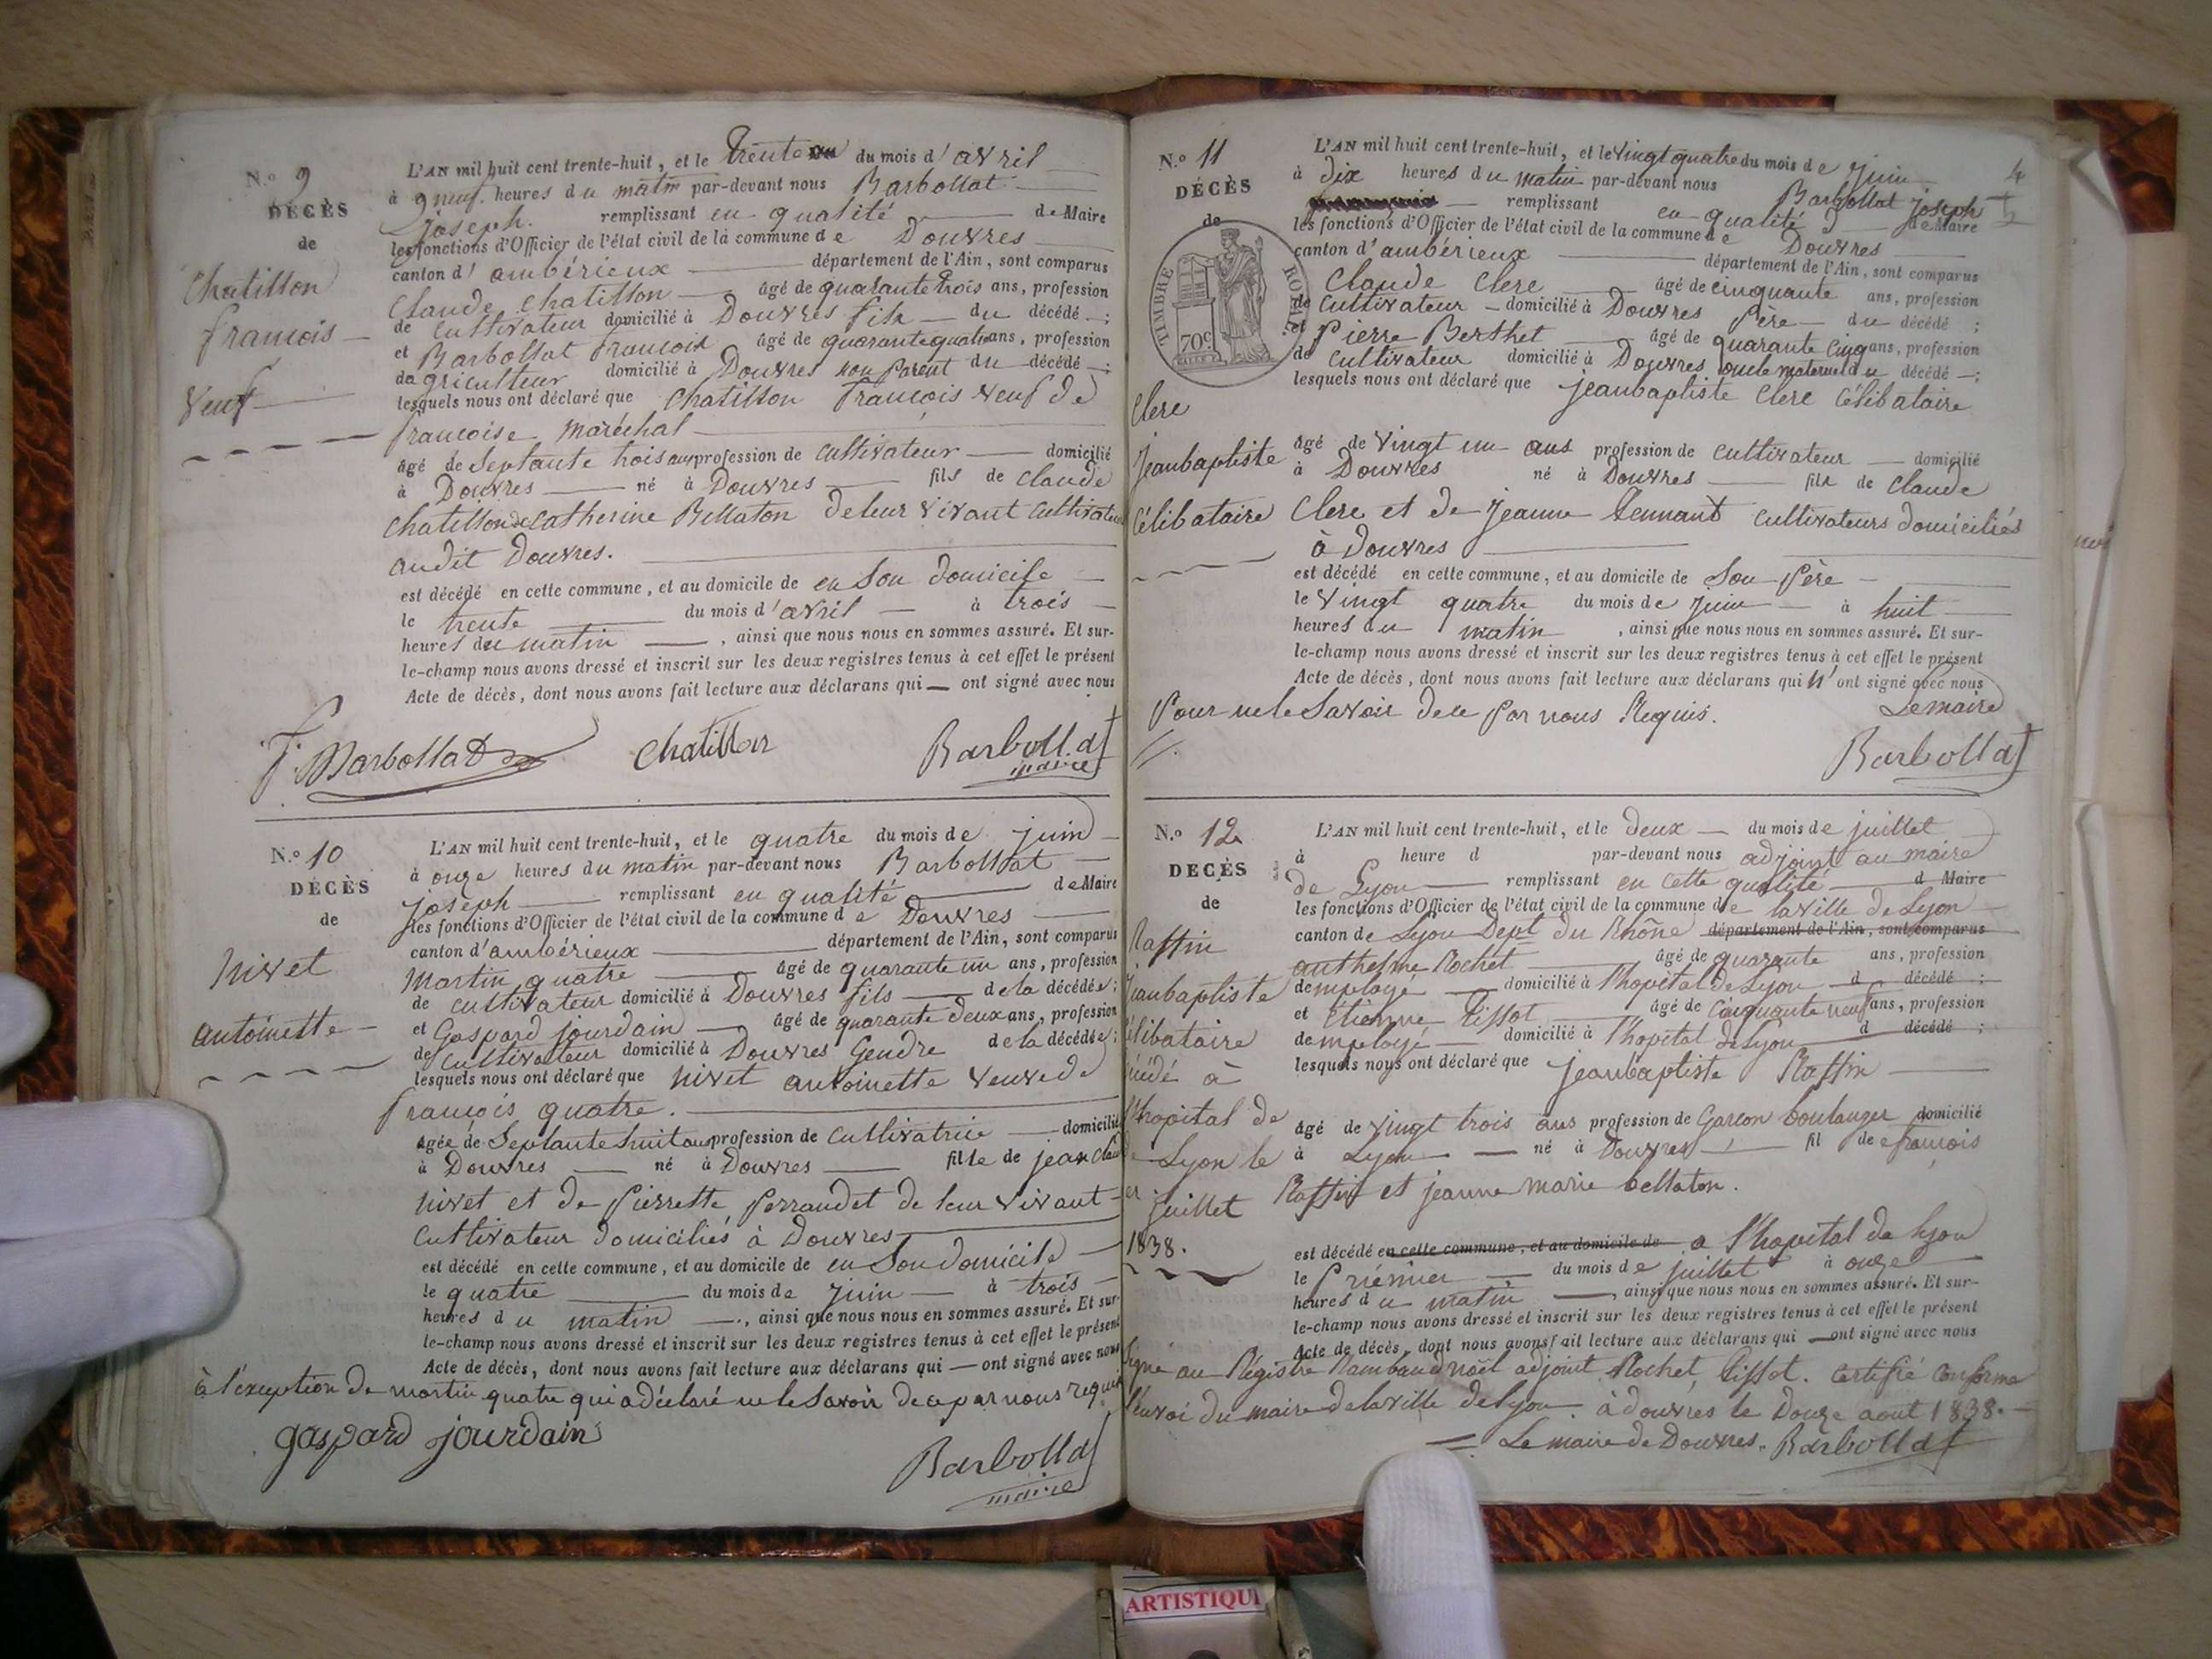 N.º 9
DÉCÈS
de
Chatillon
francois
Veuf
L'AN mil huit cent trente-huit, et le trente du mois d'avril
à 9 neuf heures du matin par-devant nous Barbollat
joseph. remplissant en qualité de Maire
les fonctions d'Officier de l'état civil de la commune de Douvres
canton d'ambérieux département de l'Ain, sont comparus
Claude Chatillon âgé de quarante trois ans, profession
de cultivateur domicilié à Douvres fils du décédé ;
et Barbollat francois âgé de quarante quatre ans, profession
d'agriculteur domicilié à Douvres son parent du décédé ;
lesquels nous ont déclaré que Chatillon francois veuf de
francoise maréchal
âgé de Septante trois ans profession de cultivateur domicilié
à Douvres né à Douvres fils de claude
chatillon & de catherine Bellaton de leur vivant cultivateurs
audit Douvres.
est décédé en cette commune, et au domicile de en Son domicile
le trente du mois d'avril à trois
heures du matin, ainsi que nous nous en sommes assuré. Et sur-
le-champ nous avons dressé et inscrit sur les deux registres tenus à cet effet le présent
Acte de décès, dont nous avons fait lecture aux déclarans qui ont signé avec nous
F. Barbollat Chatillon Barbollat
maire
N.º 10
DÉCÈS
de
nivet
antoinette
L'AN mil huit cent trente-huit, et le quatre du mois de juin
à onze heures du matin par-devant nous Barbollat
joseph remplissant en qualité de Maire
les fonctions d'Officier de l'état civil de la commune de Douvres
canton d'ambérieux département de l'Ain, sont comparus
Martin quatre âgé de quarante un ans, profession
de cultivateur domicilié à Douvres fils de la décédée ;
et Gaspard jourdain âgé de quarante deux ans, profession
de cultivateur domicilié à Douvres Gendre de la décédée ;
lesquels nous ont déclaré que nivet antoinette veuve de
francois quatre.
âgée de Septante huit ans profession de cultivatrice domicilié
à Douvres né à Douvres fille de jean claude
nivet et de Pierrette Perraudet de leur vivant
cultivateur domiciliés à Douvres
est décédé en cette commune, et au domicile de en Son domicile
le quatre du mois de juin à trois
heures du matin, ainsi que nous nous en sommes assuré. Et sur-
le-champ nous avons dressé et inscrit sur les deux registres tenus à cet effet le présent
Acte de décès, dont nous avons fait lecture aux déclarans qui ont signé avec nous
à l'exception de martin quatre qui a déclaré ne le savoir de ce par nous requis
gaspard jourdain
Barbollat
maire
N.º 11
DÉCÈS
de
TIMBRE ROYAL
70c
Clerc
jeanbaptiste
Célibataire
L'AN mil huit cent trente-huit, et le vingt quatre du mois de juin
à dix heures du matin par-devant nous Barbollat joseph
remplissant en qualité de Maire
les fonctions d'Officier de l'état civil de la commune de Douvres
canton d'ambérieux département de l'Ain, sont comparus
Claude Clerc âgé de cinquante ans, profession
de cultivateur domicilié à Douvres Père du décédé ;
et Pierre Berthet âgé de quarante cinq ans, profession
de cultivateur domicilié à Douvres oncle maternel du décédé ;
lesquels nous ont déclaré que jeanbaptiste Clerc Célibataire
âgé de vingt un ans profession de cultivateur domicilié
à Douvres né à Douvres fils de claude
Clerc et de jeanne cultivateurs domiciliés
à Douvres
est décédé en cette commune, et au domicile de Son Père
le vingt quatre du mois de juin à huit
heures du matin, ainsi que nous nous en sommes assuré. Et sur-
le-champ nous avons dressé et inscrit sur les deux registres tenus à cet effet le présent
Acte de décès, dont nous avons fait lecture aux déclarans qui n'ont signé avec nous
Pour ne le Savoir de ce Par nous Requis. Lemaire
Barbollat
N.º 12
DECÈS
de
Raffin
jeanbaptiste
célibataire
décédé à
l'hopital de
Lyon le
1er juillet
1838.
L'AN mil huit cent trente-huit, et le deux du mois de juillet
à heure d par-devant nous adjoint au maire
de Lyon remplissant en cette qualité d Maire
les fonctions d'Officier de l'état civil de la commune de la ville de Lyon
canton de Lyon Dept du Rhône département de l'Ain, sont comparus
anthelme Rochet âgé de quarante ans, profession
d'employé domicilié à l'hopital de Lyon d décédé ;
et Etienne Tissot âgé de Cinquante neuf ans, profession
d'employé domicilié à l'hopital de Lyon d décédé ;
lesquels nous ont déclaré que jeanbaptiste Raffin
âgé de vingt trois ans profession de Garcon boulanger domicilié
à Lyon né à Douvres fil de francois
Raffin et jeanne marie bellaton.
est décédé en cette commune, et au domicile de a l'hopital de Lyon
le Prémier du mois de juillet à onze
heures du matin, ainsi que nous nous en sommes assuré. Et sur-
le-champ nous avons dressé et inscrit sur les deux registres tenus à cet effet le présent
Acte de décès, dont nous avons fait lecture aux déclarans qui ont signé avec nous
Signé au Régistre Rambaud noël adjoint Rochet, Tissot. Certifié Conforme
l'envoi du maire de la ville de Lyon. à douvres le Douze aout 1838.
Le maire de Douvres. Barbollat
ARTISTIQU